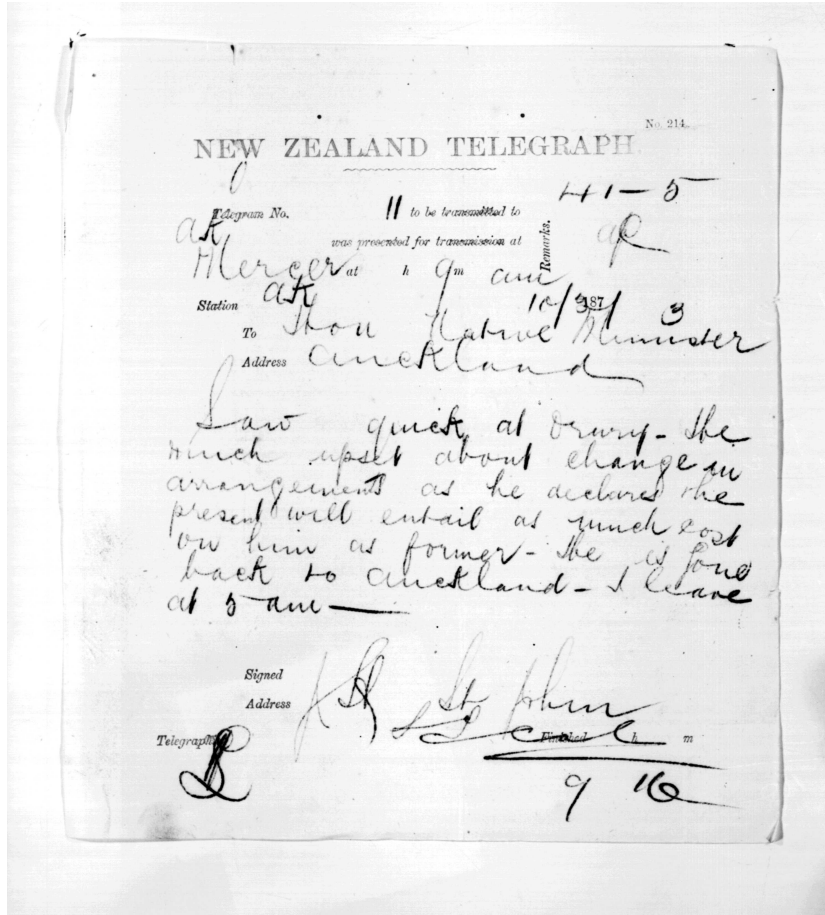 No. 214.
NEW ZEALAND TELEGRAPH.
41-5
Telegram No. 11 to be transmitted to
Ak was presented for transmission at Remarks.
Mercer at h 9 m am
Station Ak 10/3/1873
To Hon Native Minister
Address Auckland
Saw Quick at Drury - He
much upset about change in
arrangements as he declares the
present will entail as much cost
on him as former - He is gone
back to Auckland - I leave
at 5 am
Signed
Address St John
Lt Col
Telegraphist Finished h m
9 16